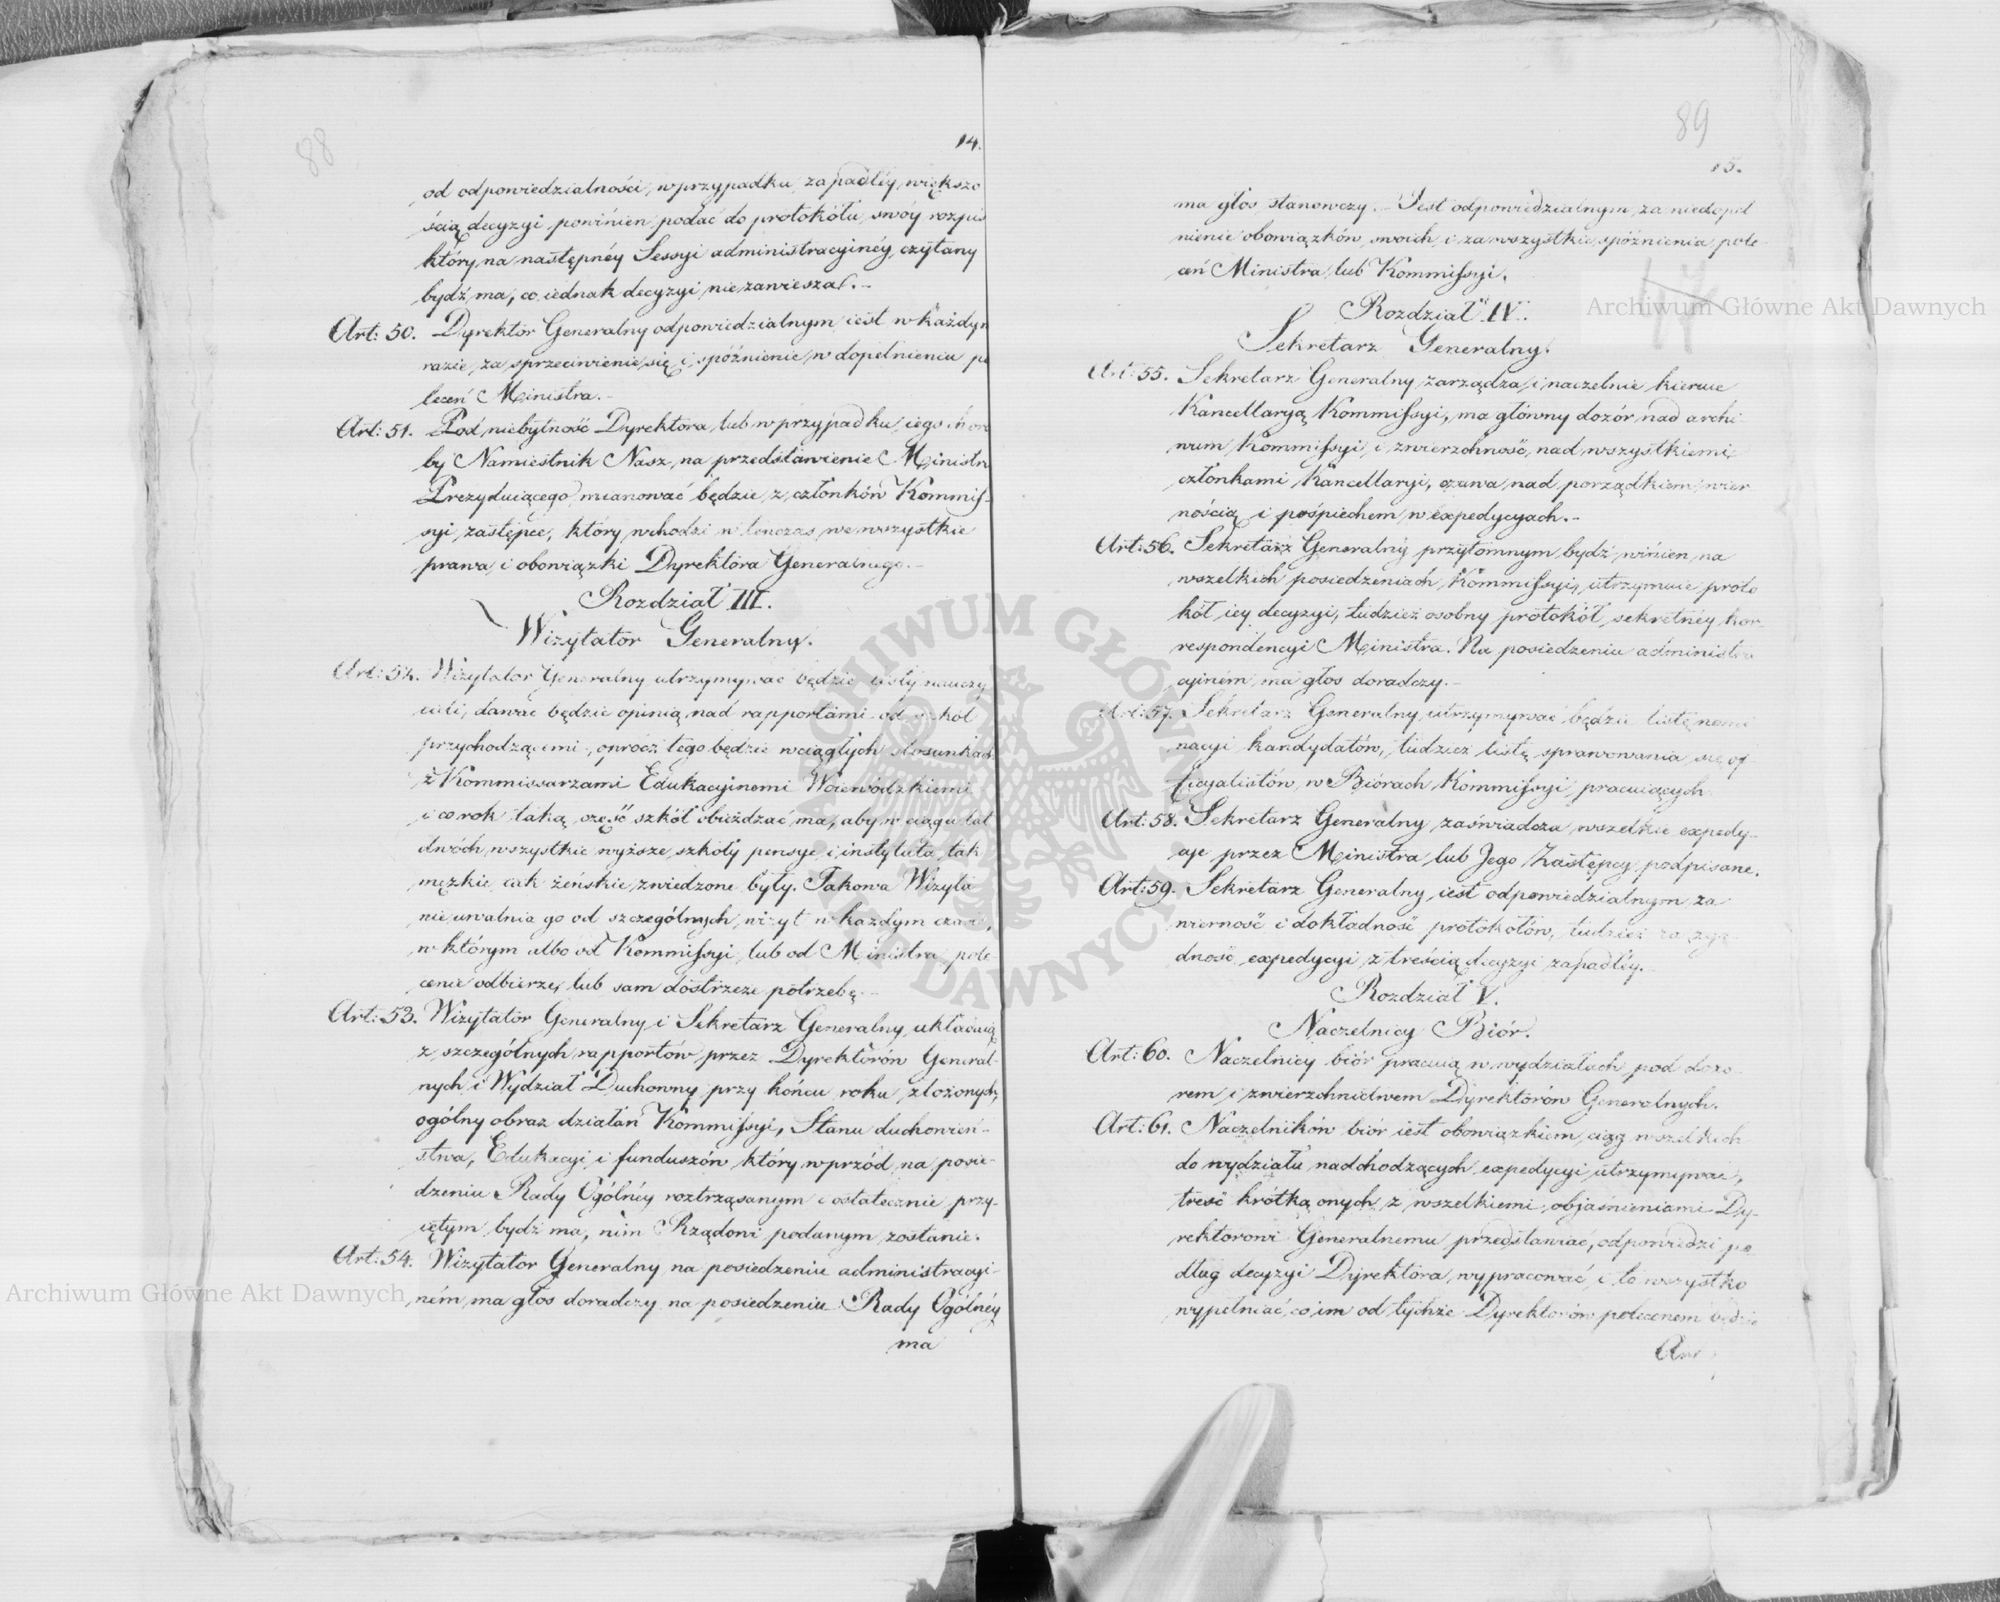 88
14.
od odpowiedzialności, w przypadku zapadłéy większo
ścią decyzyi powinien podać do protokółu swóy rozpis
który na następnéy Sessyi administracyinéy czytany
bydź ma, co iednak decyzyi nie zawiesza.-
Art: 50. Dyrektor Generalny odpowiedzialnym iest w każdym
razie, za sprzeciwienie się i spóźnienie w dopełnieniu po
leceń Ministra.-
Art: 51. Pod niebytność Dyrektora, lub w przypadku iego choro
by Namiestnik Nasz, na przedstawienie Ministra
Prezyduiącego mianować będzie z członków Kommis-
syi zastępce, który wchodzi w tenczas we wszystkie
prawa, i obowiązki Dyrektora Generalnego.-
Rozdział III.
Wizytator Generalny.
Art: 52. Wizytator Generalny utrzymywać będzie listy nauczy
cieli, dawać będzie opinią nad rapportami od szkół
przychodzącemi, oprócz tego będzie w ciągłych stosunkach
z Kommissarzami Edukacyinemi Woiewódzkiemi
i co rok taką część szkół obieżdzać ma, aby w ciągu lat
dwóch, wszystkie wyższe szkoły pensye i instytuta, tak
męzkie, iak żeńskie, zwiedzone były. Takowa Wizyta
nie uwalnia go od szczególnych wizyt w każdym czasie,
w którym albo od Kommissyi, lub od Ministra pole-
cenie odbierze, lub sam dostrzeże potrzebę.-
Art: 53. Wizytator Generalny i Sekretarz Generalny, układaią
z szczególnych rapportów przez Dyrektorów General-
nych i Wydział Duchowny przy końcu roku złożonych,
ogólny obraz działań Kommissyi, Stanu duchowień-
stwa, Edukacyi i funduszów który wprzód, na posie-
dzeniu Rady Ogólnéy roztrząsanym i ostatecznie przy-
iętym bydź ma, nim Rządowi podanym zostanie.
Art: 54. Wizytator Generalny na posiedzeniu administracyi-
ném, ma głos doradczy, na posiedzeniu Rady Ogólnéy
ma
89
15.
ma głos stanowczy.- Jest odpowiedzialnym, za niedopeł
nienie obowiązków swoich, i za wszystkie spóźnienia pole-
ceń Ministra, lub Kommissyi.
Rozdział IV.
Sekretarz Generalny.
Art: 55. Sekretarz Generalny zarządza, i naczelnie kieruie
Kancellaryą Kommissyi, ma główny dozór nad archi-
wum Kommissyi, i zwierzchność, nad wszystkiemi
członkami Kancellaryi, czuwa nad porządkiem, wier
nością i pośpiechem w expedycyach.-
Art: 56. Sekretarz Generalny przytomnym bydź winien, na
wszelkich posiedzeniach Kommissyi, utrzymuie proto
kół iéy decyzyi, tudzież osobny protokół sekretnéy kor-
respondencyi Ministra. Na posiedzeniu administra
cyiném ma głos doradczy.-
Art: 57. Sekretarz Generalny utrzymywać będzie listę nomi
nacyi kandydatów, tudzież listę sprawowania się of
ficyalistów w Biórach Kommissyi pracuiących
Art: 58. Sekretarz Generalny zaświadcza wszelkie expedy-
cye przez Ministra, lub Jego Zastępcy podpisane.
Art: 59. Sekretarz Generalny, iest odpowiedzialnym za
wierność i dokładność protokółów, tudzież za zgo
dność expedycyi z treścią decyzyi zapadłéy.-
Rozdział V.
Naczelnicy Biór.
Art: 60. Naczelnicy biór pracuią w wydziałach pod dozo-
rem, i zwierzchnictwem Dyrektorów Generalnych.
Art: 61. Naczelników biór iest obowiązkiem, ciąg wszelkich
do wydziału nadchodzących expedycyi utrzymywać,
treść krótką onych z wszelkiemi objaśnieniami Dy-
rektorowi Generalnemu przedstawiać, odpowiedzi po
dług decyzyi Dyrektora, wypracować, i to wszystko
wypełniać, co im od tychże Dyrektorów poleconem będzie
Archiwum Główne Akt Dawnych
Archiwum Główne Akt Dawnych
ARCHIWUM GŁÓWNE AKT DAWNYCH